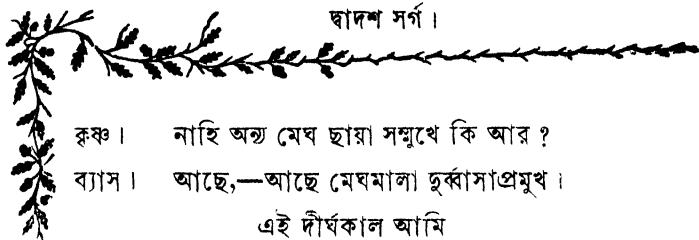 দ্বাদশ সর্গ।
কৃষ্ণ। নাহি অন্য মেঘ ছায়া সম্মুখে কি আর ?
ব্যাস। আছে,—আছে মেঘমালা দুর্ব্বাসাপ্রমুখ।
এই দীর্ঘকাল আমি